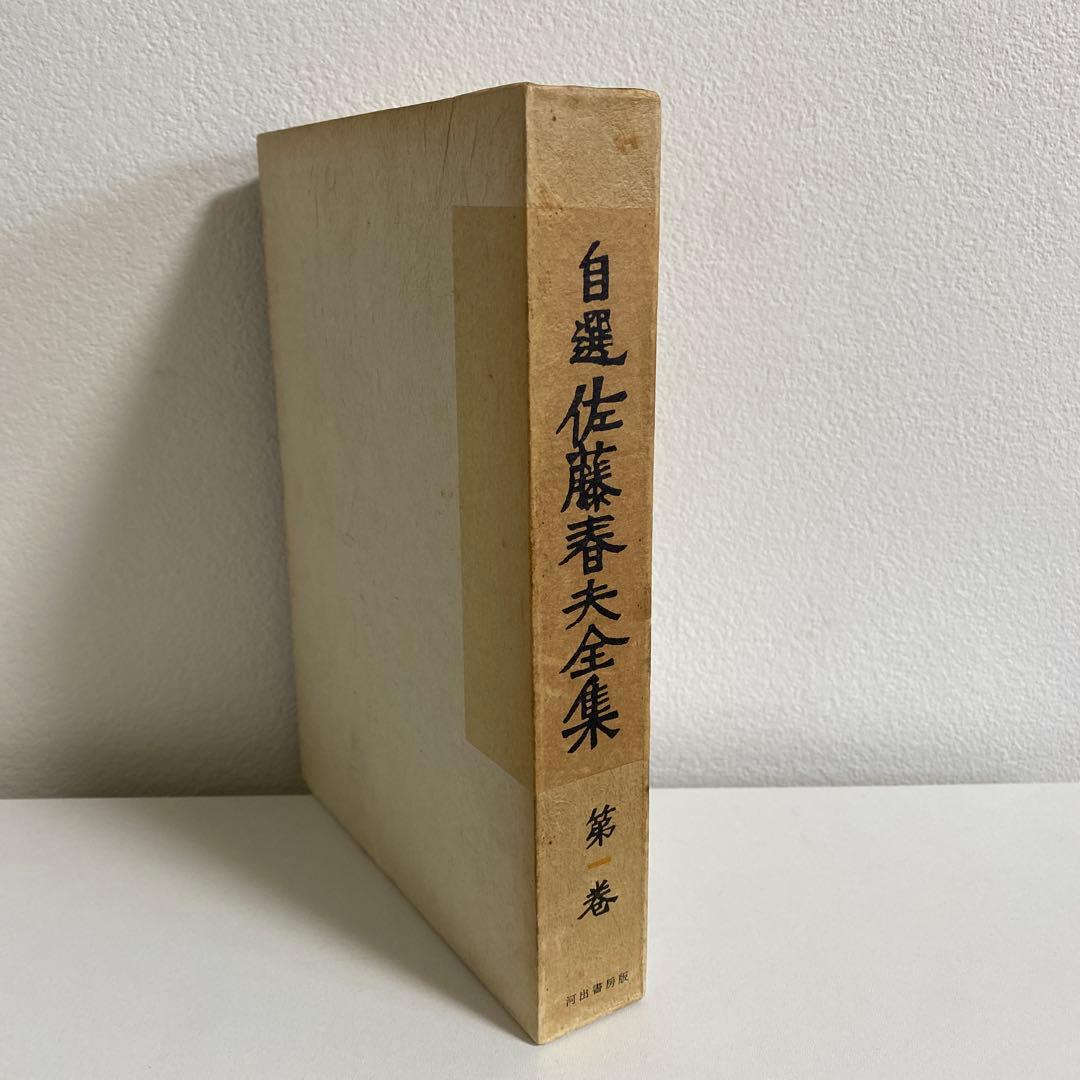 自選佐藤春夫全集
第一巻
河出書房版